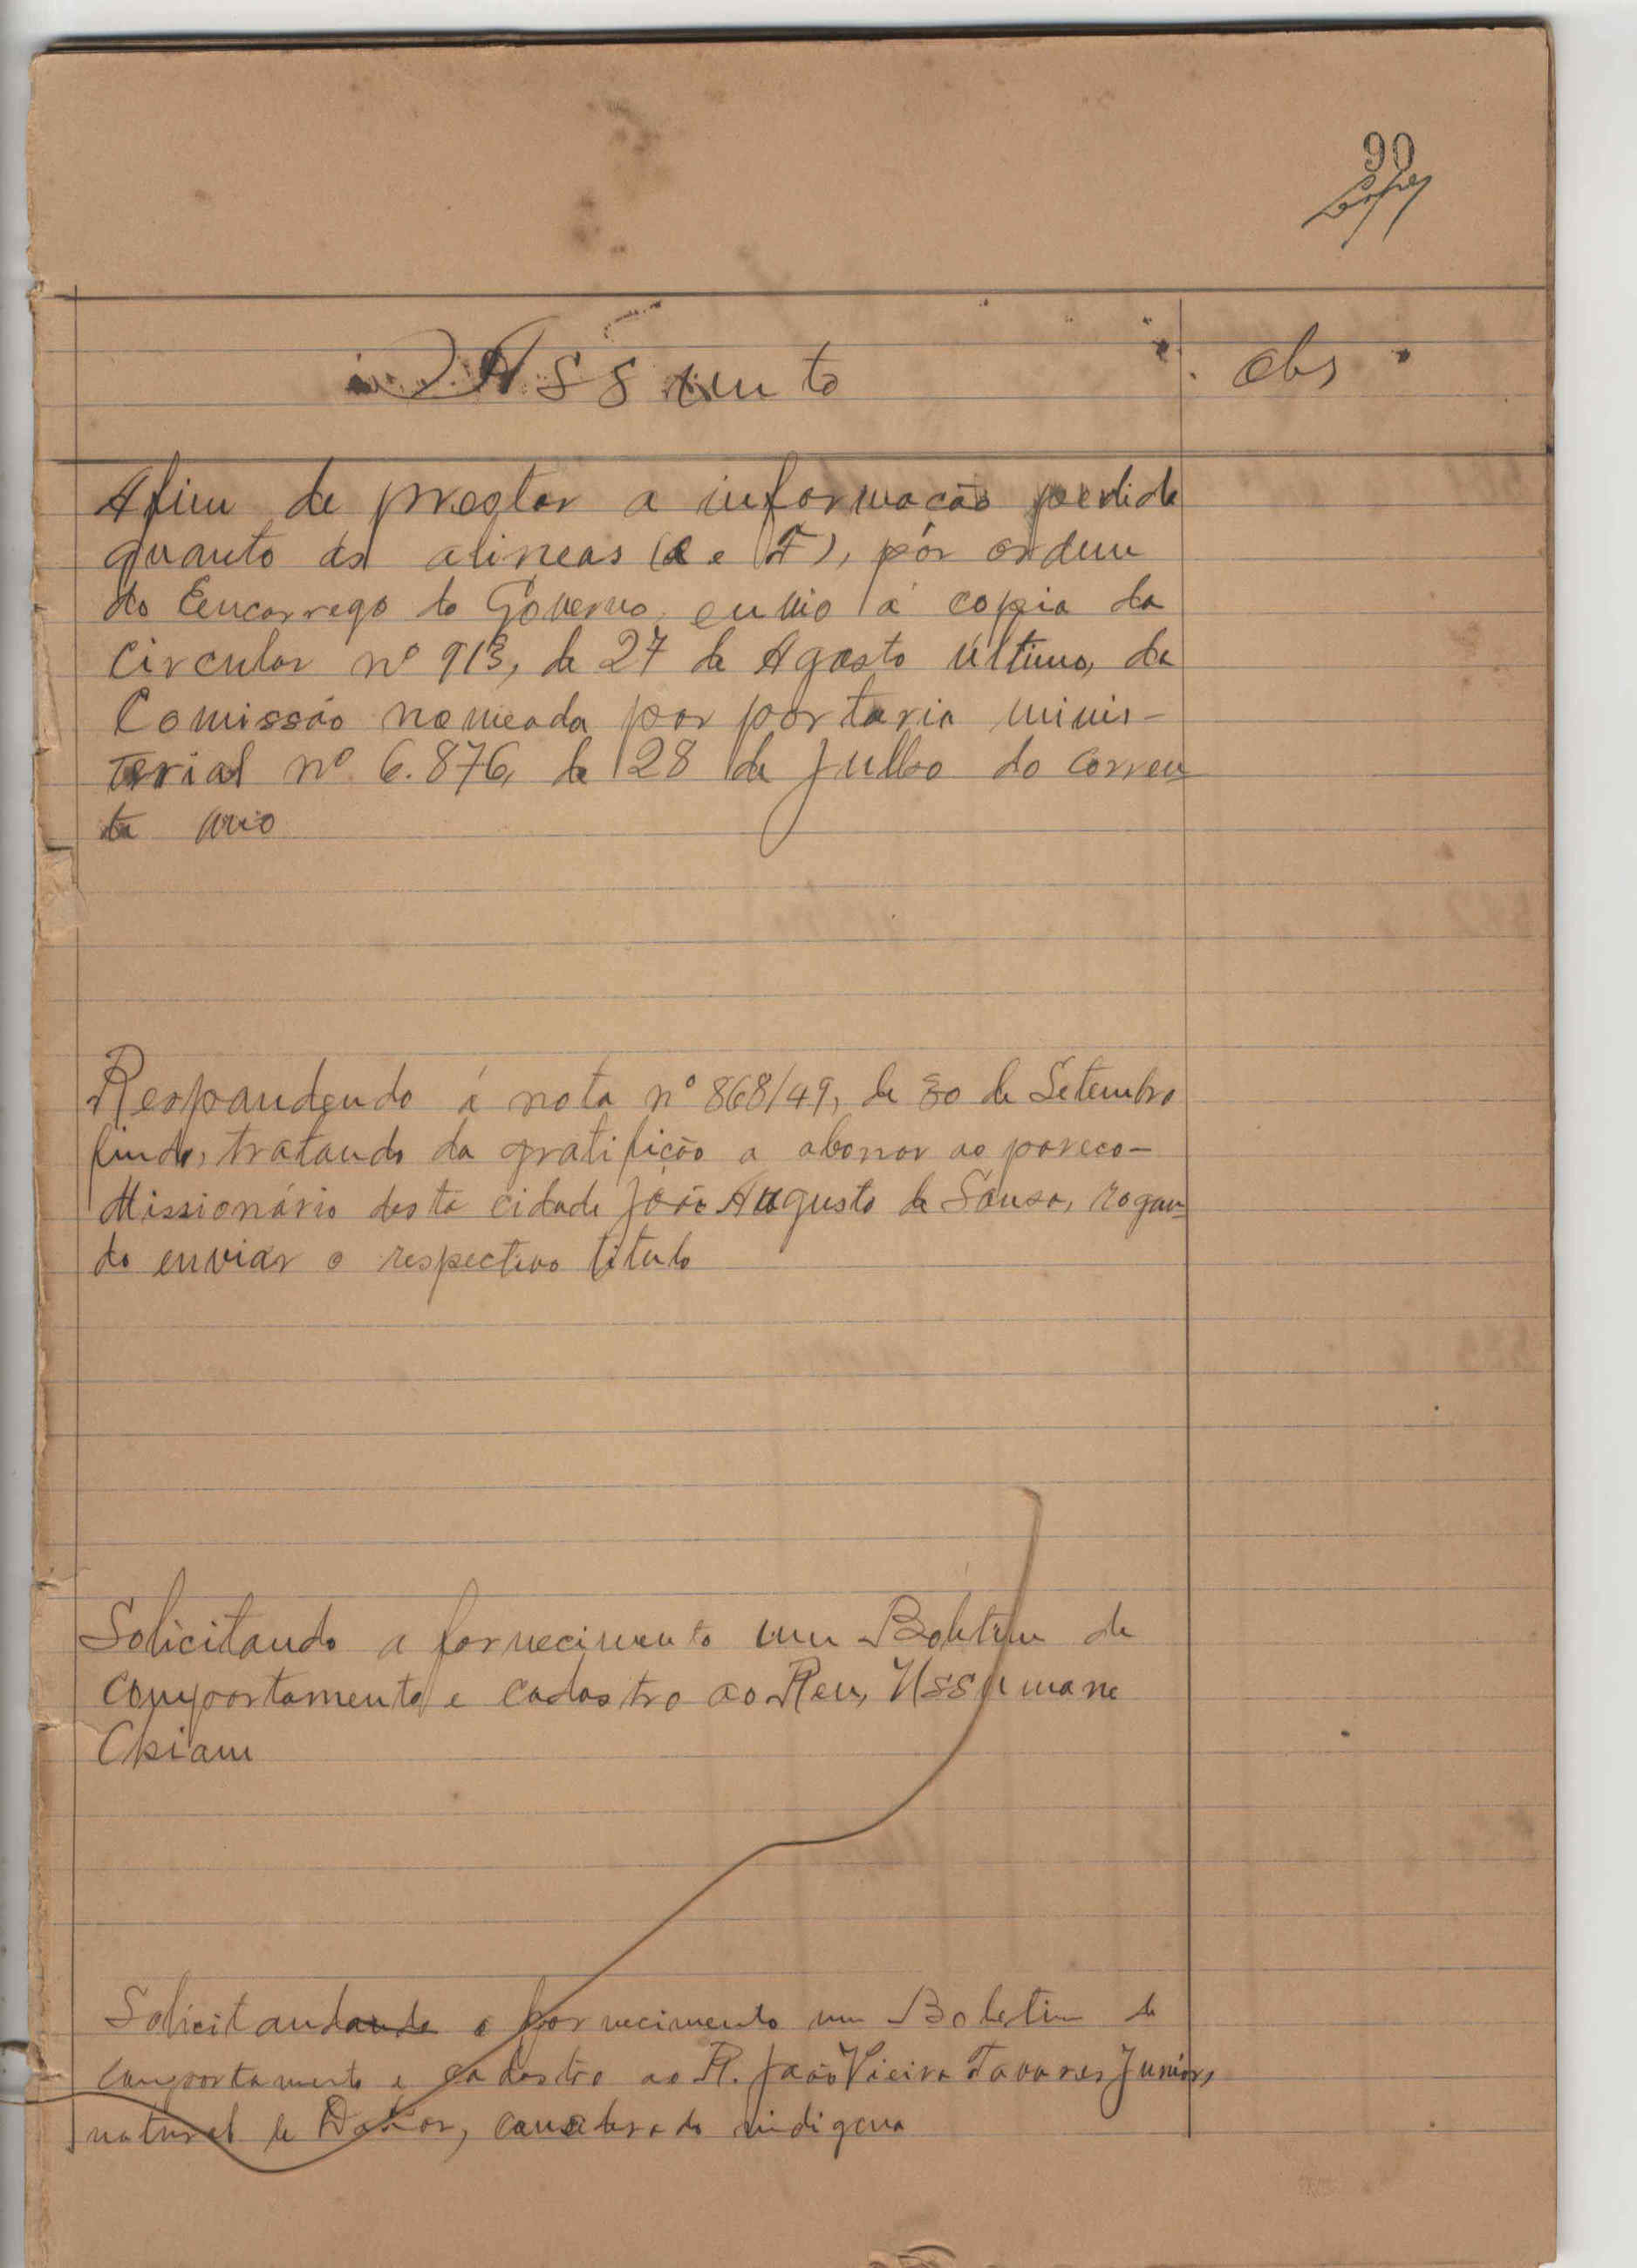 90
Assunto
obs
Afim de prestar a informacão pedida
quanto ás alineas (e e F), pór ordem
do Eencarrego do Governo, envio a copia da
Circular nº 913, de 27 de Agosto último, da
Comissão nomeada por portaria minis-
terial nº 6.876, de 28 de Julho do corren
te ano
Respondendo á nota nº 868/49, de 30 de Setembro
findo, tratando da gratificão a abonar ao pareco-
Missionário desta cidade João Augusto de Sousa, rogan
do enviar o respectivo titulo
Solicitando a fornecimento um Boletim de
comportamento e cadastro ao Reu, Ussumane
Solicitando o fornecimento um Boletim de
comportamento e cadastro ao R. João Vieira Tavares Junior,
natural de Dakar, considerado indigena